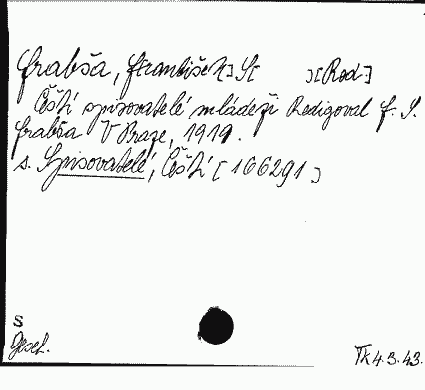 Frabša, F[rantišek] S[ ] [Red.]
Čeští spisovatelé mládeži Redigoval F. S.
Frabša V Praze, 1919.
s. Spisovatelé, Čeští [166291]
S
Gesch.
Tk 4.3.43.